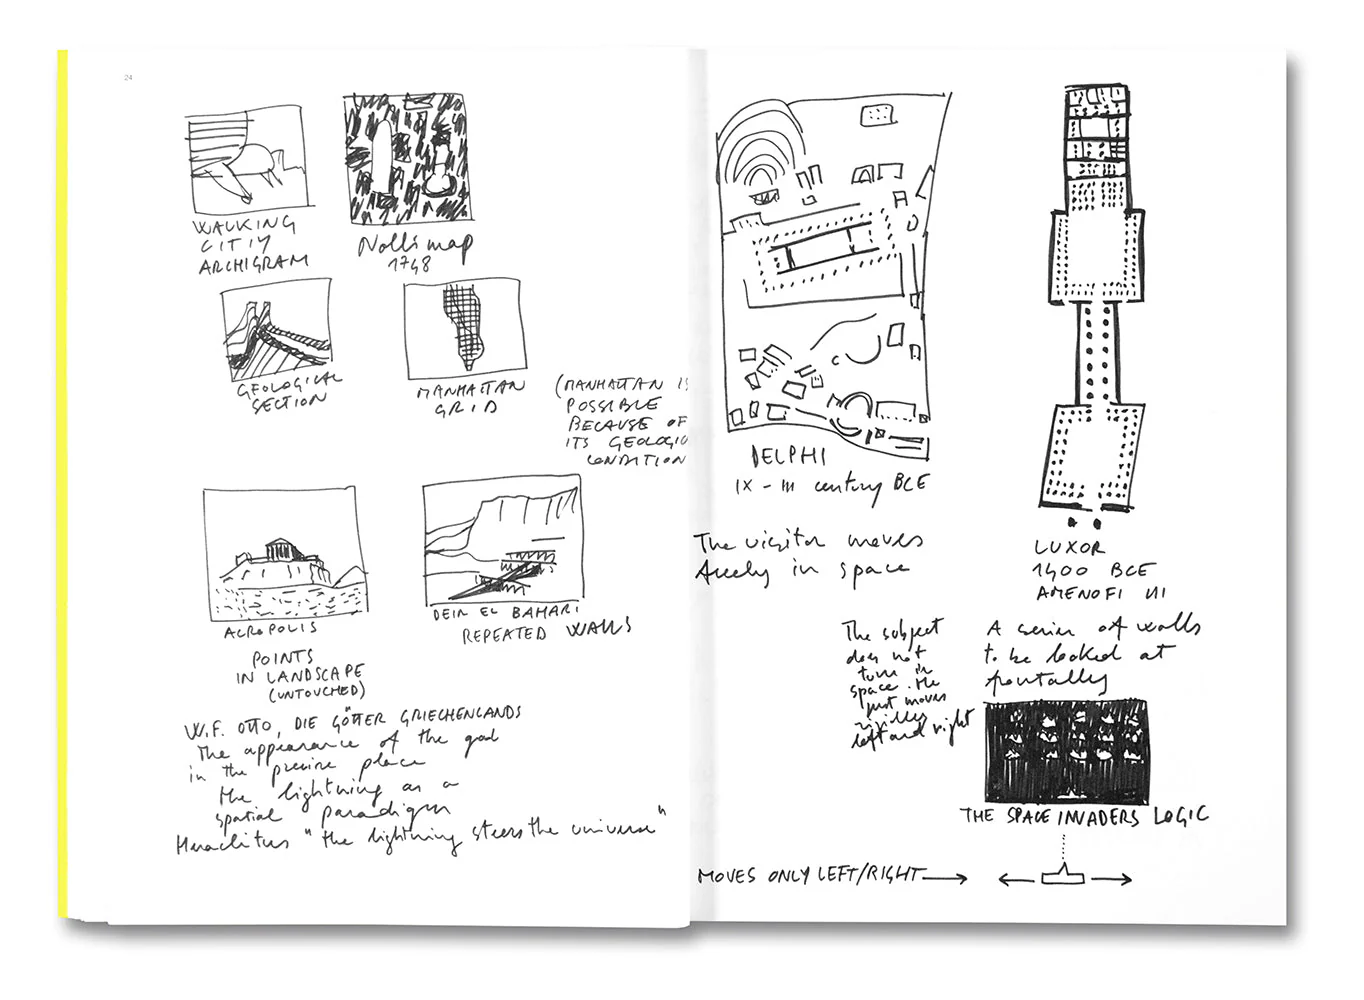 24
WALKING
CITIY
ARCHIGRAM
Nolli map
1748
GEOLOGICAL
SECTION
MANHATTAN
GRID
(MANHATTAN IS
POSSIBLE
BECAUSE OF
ITS GEOLOGIC
CONDITION
ACROPOLIS
POINTS
IN LANDSCAPE
(UNTOUCHED)
DEIR EL BAHARI
REPEATED WALLS
W.F. OTTO, DIE GÖTTER GRIECHENLANDS
The appearance of the god
in the precise place
the lightning as a
spatial paradigm
Heraclitus "the lightning steers the universe"
DELPHI
IX - III century BCE
The visitor moves
freely in space
LUXOR
1400 BCE
AMENOFI III
The subject
does not
turn in
space. He
just moves
left and right
A series of walls
to be looked at
frontally
THE SPACE INVADERS LOGIC
MOVES ONLY LEFT/RIGHT